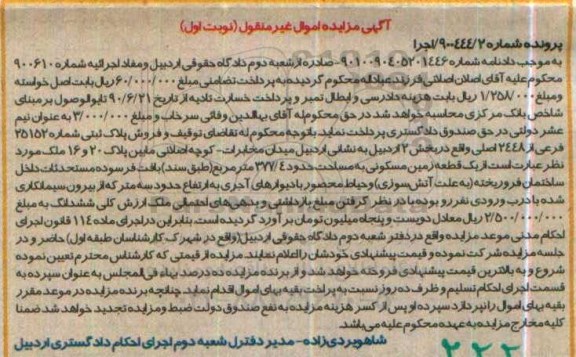 آگهی مزایده اموال غیر منقول (نوبت اول)
پرونده شماره ۹۰۰۴۴۴/۲/اجرا
به موجب دادنامه شماره ۹۰۱۰۰۹۰۴۰۵۲۰۱۴۴۶ - صادره از شعبه دوم دادگاه حقوقی اردبیل و مفاد اجرائیه شماره ۹۰۰۶۱۰
محکوم علیه آقای اصلان اصلانی فرزند عبداله محکوم گردیده به پرداخت تضامنی مبلغ ۶۰/۰۰۰/۰۰۰ ریال بابت اصل خواسته
و مبلغ ۱/۲۵۸/۰۰۰ ریال بابت هزینه دادرسی و ابطال تمبر و پرداخت خسارت تادیه از تاریخ ۹۰/۶/۲۱ تا یوم الوصول بر مبنای
شاخص بانک مرکزی محاسبه خواهد شد در حق محکوم له آقای بهاالدین وفائی سرخاب و مبلغ ۳/۰۰۰/۰۰۰ به عنوان نیم
عشر دولتی در حق صندوق دادگستری پرداخت نماید. باتوجه محکوم له تقاضای توقیف و فروش پلاک ثبتی شماره ۲۵۱۵۲
فرعی از ۲۴۴۸ اصلی واقع در بخش ۲ اردبیل به نشانی اردبیل میدان مخابرات - کوچه اصلانی مابین پلاک ۲۰ و ۱۶ ملک مورد
نظر عبارت است از یک قطعه زمین مسکونی به مساحت حدود ۳۷۷/۴ مترمربع (طبق سند) بافت فرسوده مستحدثات داخل
ساختمان فرو ریخته (به علت آتش سوزی) و حیاط محصور با دیوارهای آجری به ارتفاع حدود سه متر که از بیرون سیمانکاری
شده با درب ورودی نفررو بوده با در نظر گرفتن مبلغ بازداشتی و بدهی های احتمالی ملک ارزش کلی ششدانگ به مبلغ
۲/۵۰۰/۰۰۰/۰۰۰ ریال معادل دویست و پنجاه میلیون تومان برآورد گردیده است. بنابراین در اجرای ماده ۱۱۴ قانون اجرای
احکام مدنی موعد مزایده واقع در دفتر شعبه دوم دادگاه حقوقی اردبیل (واقع در شهرک کارشناسان طبقه اول) حاضر و در
جلسه مزایده شرکت نموده و قیمت پیشنهادی خودشان را اعلام نمایند. مزایده از قیمتی که کارشناس محترم تعیین نموده
شروع و به بالاترین قیمت پیشنهادی فروخته خواهد شد و از برنده مزایده ده درصد بهاء فی المجلس به عنوان سپرده به
قسمت اجرای احکام تسلیم و ظرف ده روز نسبت به پرداخت بقیه بهای اموال اقدام نماید. چنانچه برنده مزایده در موعد مقرر
بقیه بهای اموال را نپردازد سپرده او پس از کسر هزینه مزایده به نفع صندوق دولت ضبط و مزایده تجدید خواهد شد ضمنا
کلیه مخارج مزایده به عهده محکوم علیه می باشد.
شاهویردی زاده - مدیر دفترل شعبه دوم اجرای احکام دادگستری اردبیل